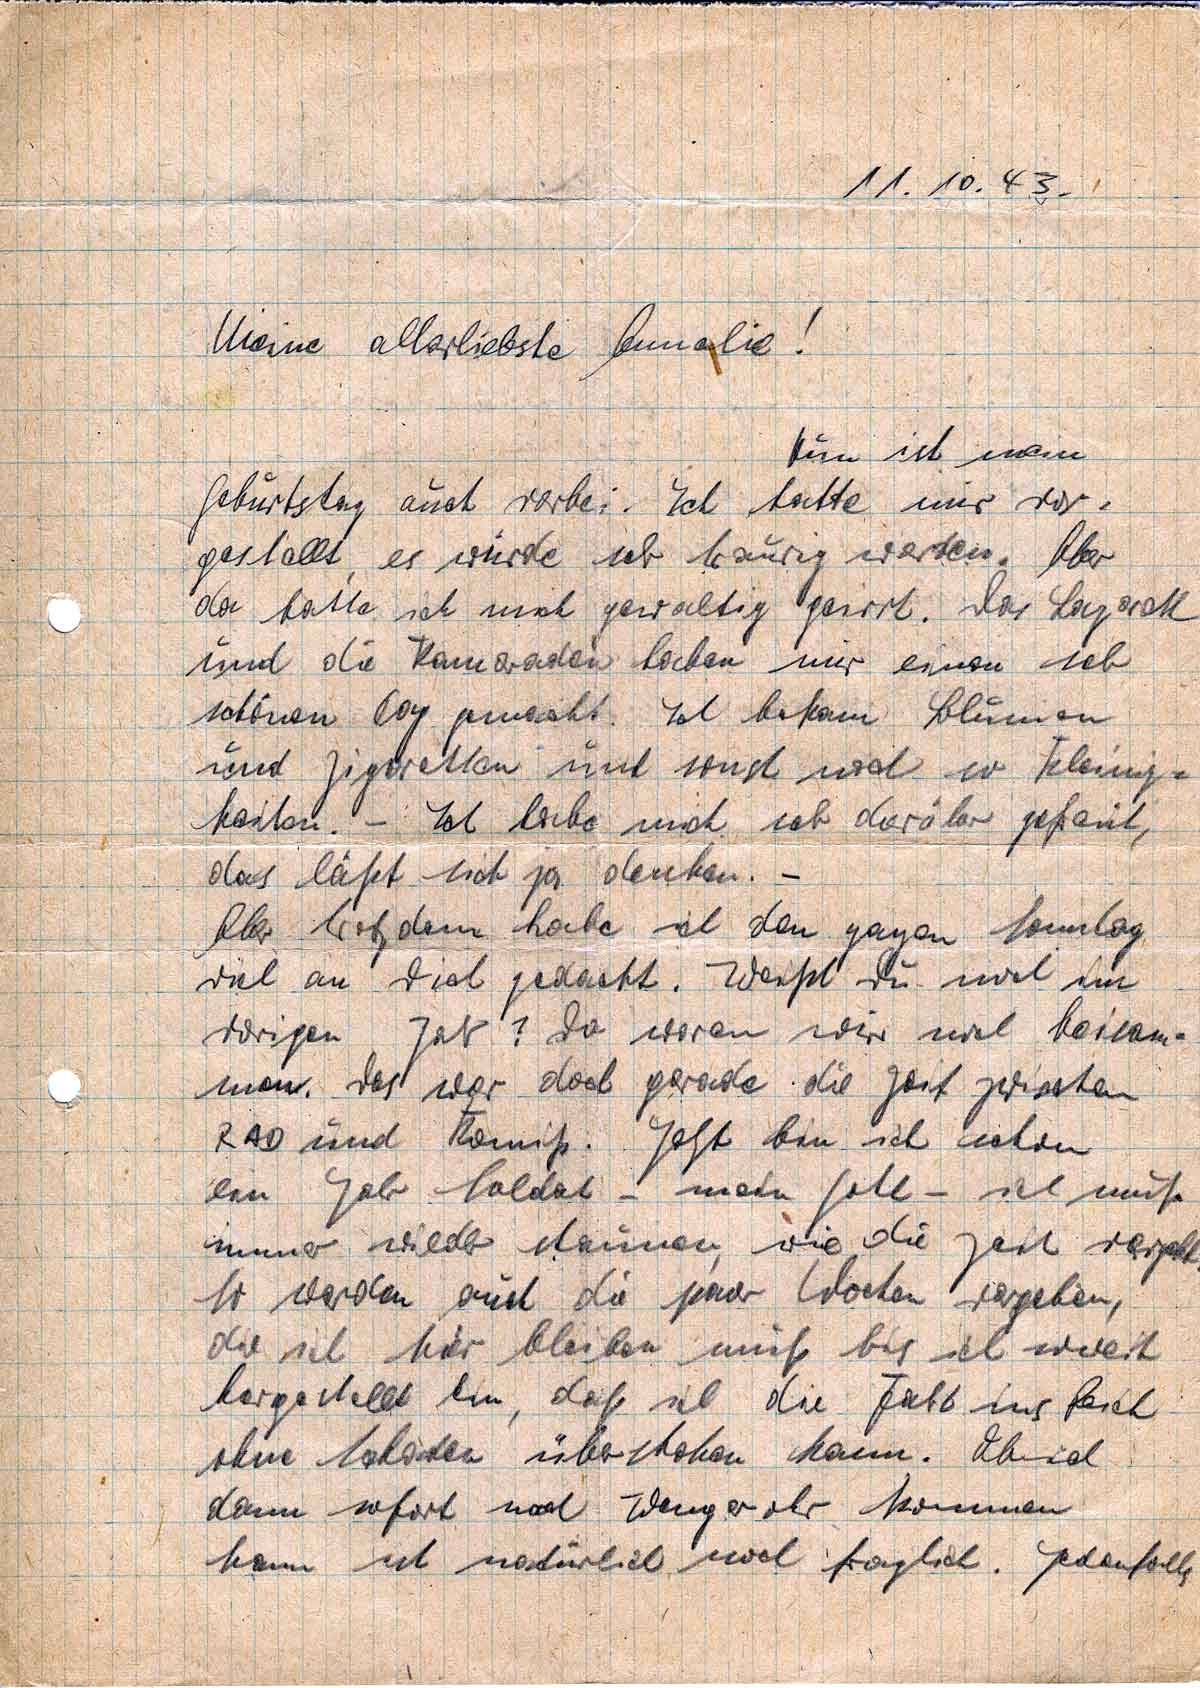 11. 10. 43.
Meine allerliebste Annelie!
Nun ist mein
Geburtstag auch vorbei. Ich hatte mir vor-
gestellt, es würde sehr traurig werden. Aber
da hatte ich mich gewaltig geirrt. Das Lazarett
und die Kameraden haben mir einen sehr
schönen Tag gemacht. Ich bekam Blumen
und Zigaretten und sonst noch so Kleinig-
keiten. – Ich habe mich sehr darüber gefreut,
das läßt sich ja denken. –
Aber trotzdem habe ich den ganzen Sonntag
viel an Dich gedacht. Weißt Du noch im
vorigen Jahr? Da waren wir noch beisam-
men. Das war doch gerade die Zeit zwischen
RAD und Komiß. Jetzt bin ich schon
ein Jahr Soldat – mein Gott – ich muß
immer wieder staunen, wie die Zeit vergeht.
So werden auch die paar Wochen vergehen,
die ich hier bleiben muß bis ich soweit
hergestellt bin, daß ich die Fahrt ins Reich
ohne Schaden überstehen kann. Ob ich
dann sofort nach Wengerohr kommen
kann ist natürlich noch fraglich. Jedenfalls